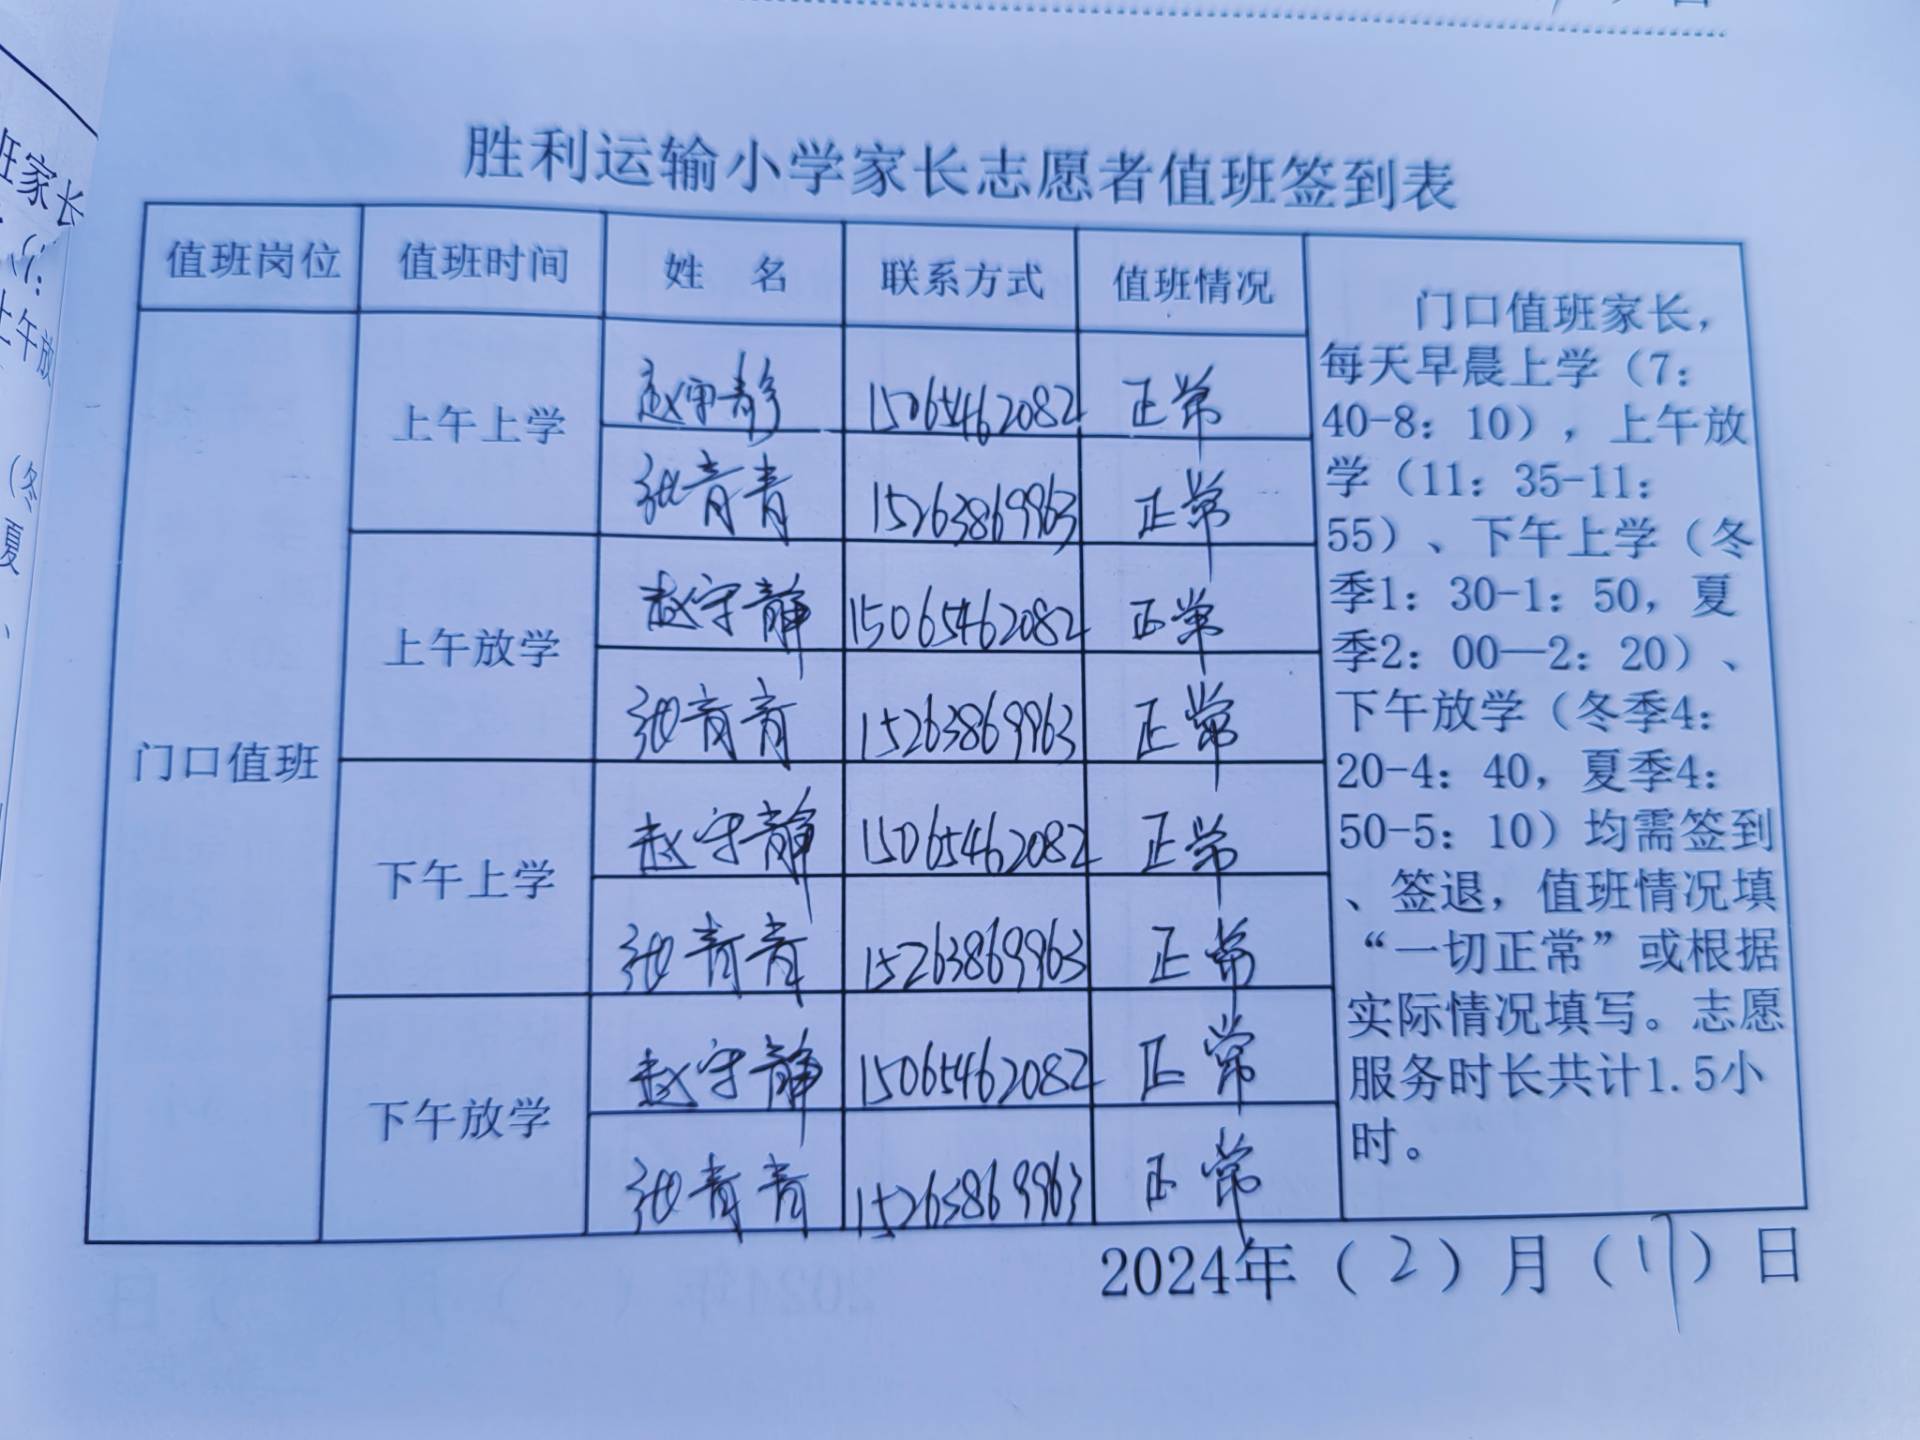 胜利运输小学家长志愿者值班签到表
值班岗位 值班时间 姓 名 联系方式 值班情况
门口值班
上午上学
赵守静 15065462082 正常
张青青 15263869963 正常
上午放学
赵守静 15065462082 正常
张青青 15263869963 正常
下午上学
赵守静 15065462082 正常
张青青 15263869963 正常
下午放学
赵守静 15065462082 正常
张青青 15263869963 正常
门口值班家长，
每天早晨上学（7：
40-8：10），上午放
学（11：35-11：
55）、下午上学（冬
季1：30-1：50，夏
季2：00—2：20）、
下午放学（冬季4：
20-4：40，夏季4：
50-5：10）均需签到
、签退，值班情况填
“一切正常”或根据
实际情况填写。志愿
服务时长共计1.5小
时。
2024年（2）月（17）日
班家长
上午放
（冬
夏